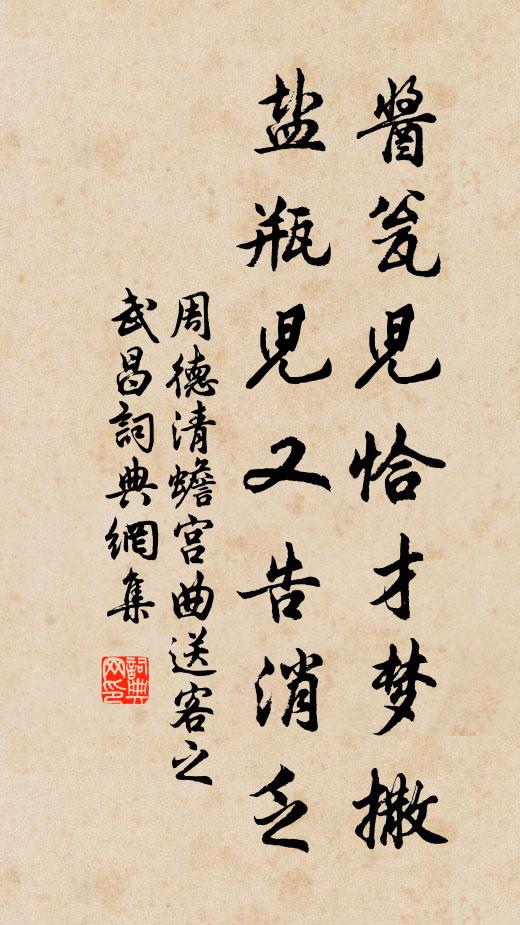 醬瓮児恰才梦撒
盐瓶児又告消乏
周德清蟾宫曲送客之
武昌詞典網集
詞典网印